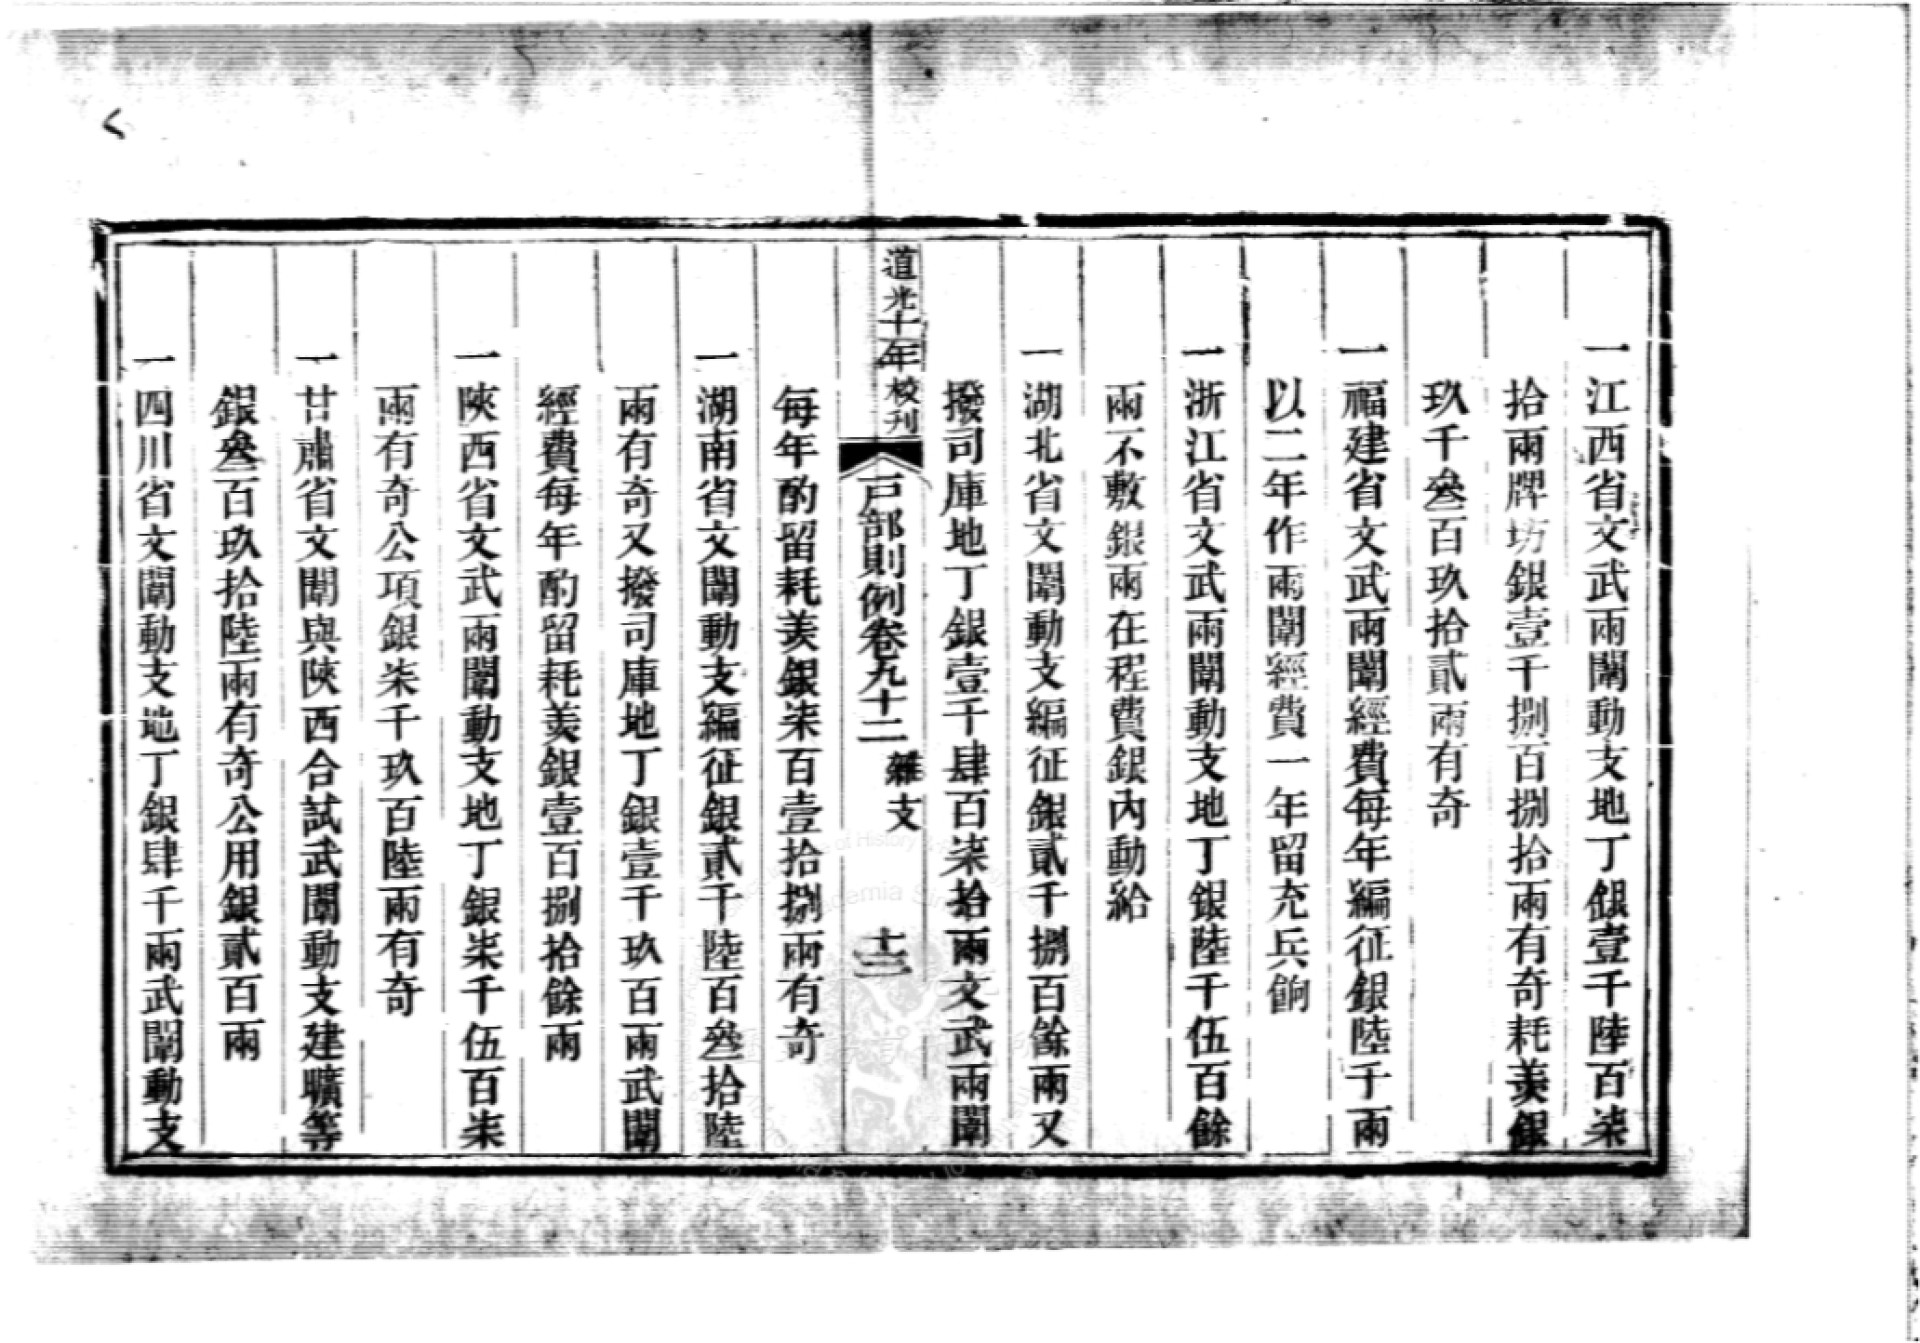 一江西省文武兩闈動支地丁銀壹千陸百柒
拾兩牌坊銀壹千捌百捌拾兩有奇耗羨銀
玖千叁百玖拾貳兩有奇
一福建省文武兩闈經費每年編征銀陸千兩
以二年作兩闈經費一年留充兵餉
一浙江省文武兩闈動支地丁銀陸千伍百餘
兩不敷銀兩在程費銀內動給
一湖北省文闈動支編征銀貳千捌百餘兩又
撥司庫地丁銀壹千肆百柒拾兩文武兩闈
道光十年校刊
戶部則例卷九十二 雜支
十三
每年酌留耗羨銀柒百壹拾捌兩有奇
一湖南省文闈動支編征銀貳千陸百叁拾陸
兩有奇又撥司庫地丁銀壹千玖百兩武闈
經費每年酌留耗羨銀壹百捌拾餘兩
一陝西省文武兩闈動支地丁銀柒千伍百柒
兩有奇公項銀柒千玖百陸兩有奇
一甘肅省文闈與陝西合試武闈動支建曠等
銀叁百玖拾陸兩有奇公用銀貳百兩
一四川省文闈動支地丁銀肆千兩武闈動支